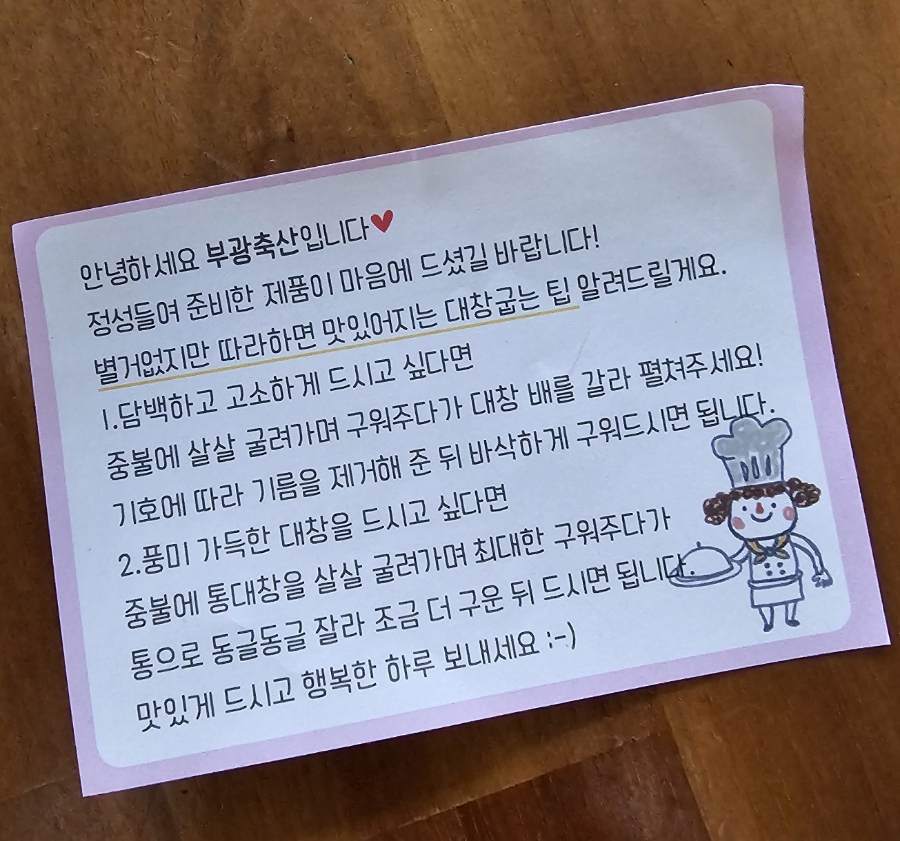 안녕하세요 부광축산입니다♥
정성들여 준비한 제품이 마음에 드셨길 바랍니다!
별거없지만 따라하면 맛있어지는 대창굽는 팁 알려드릴게요.
1.담백하고 고소하게 드시고 싶다면
중불에 살살 굴려가며 구워주다가 대창 배를 갈라 펼쳐주세요!
기호에 따라 기름을 제거해 준 뒤 바삭하게 구워드시면 됩니다.
2.풍미 가득한 대창을 드시고 싶다면
중불에 통대창을 살살 굴려가며 최대한 구워주다가
통으로 동글동글 잘라 조금 더 구운 뒤 드시면 됩니다
맛있게 드시고 행복한 하루 보내세요 :-)